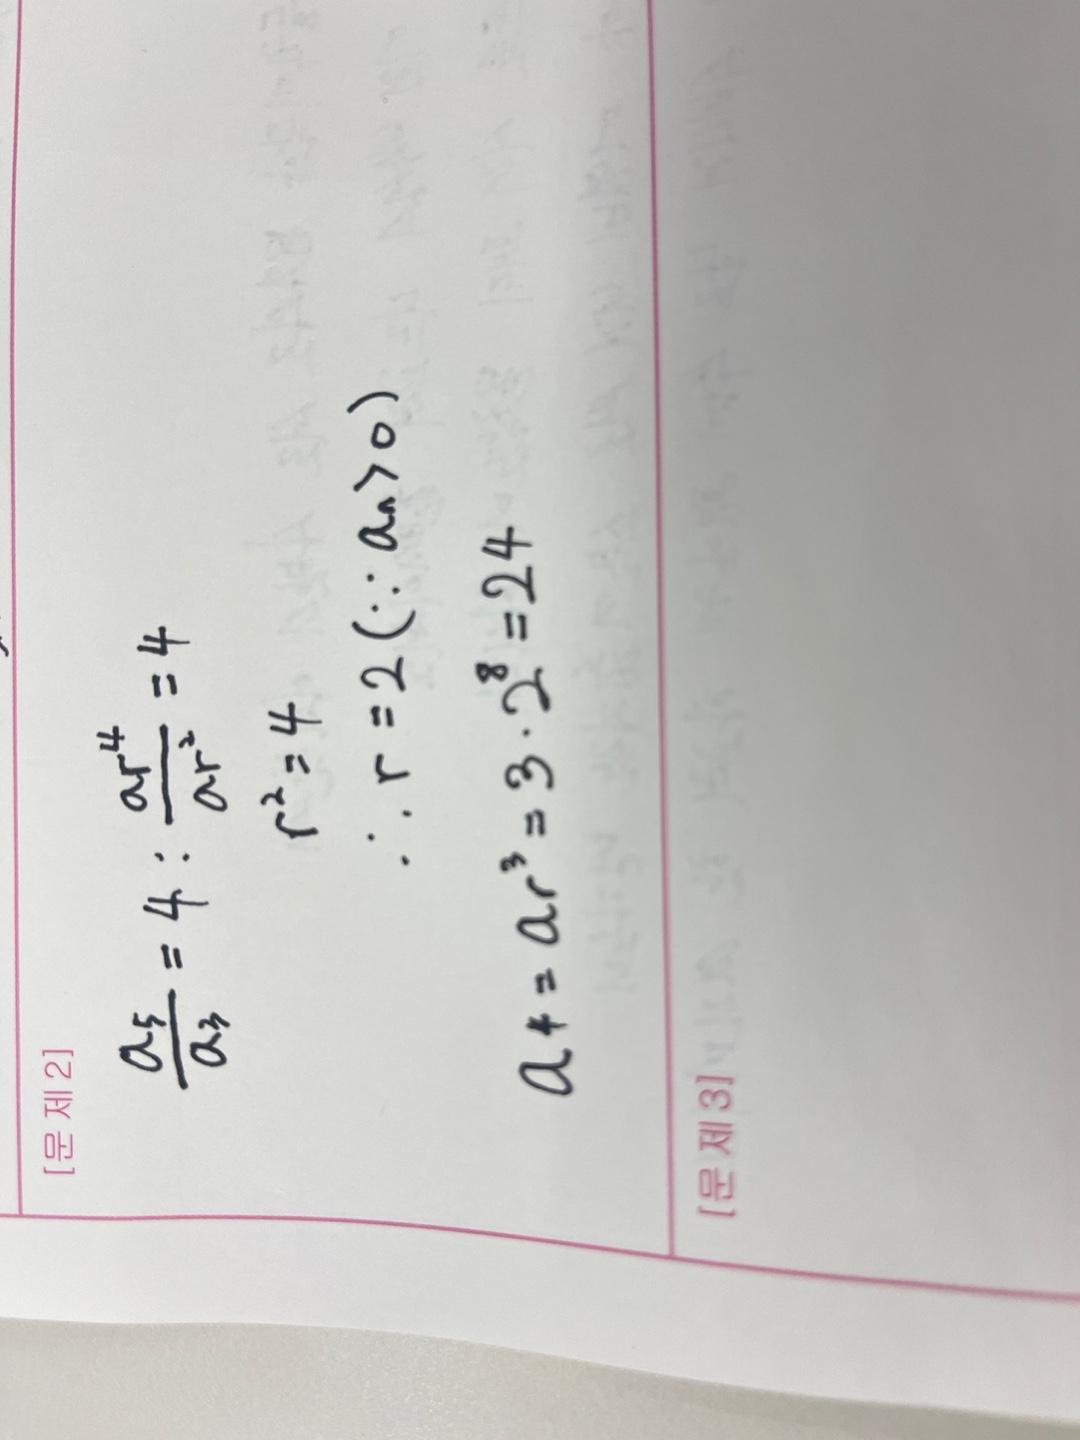 [문제2]
a₅/a₃ = 4 : ar⁴/ar² = 4
r² = 4
∴ r = 2 (∵ aₙ > 0)
a₄ = ar³ = 3 · 2⁸ = 24
[문제3]